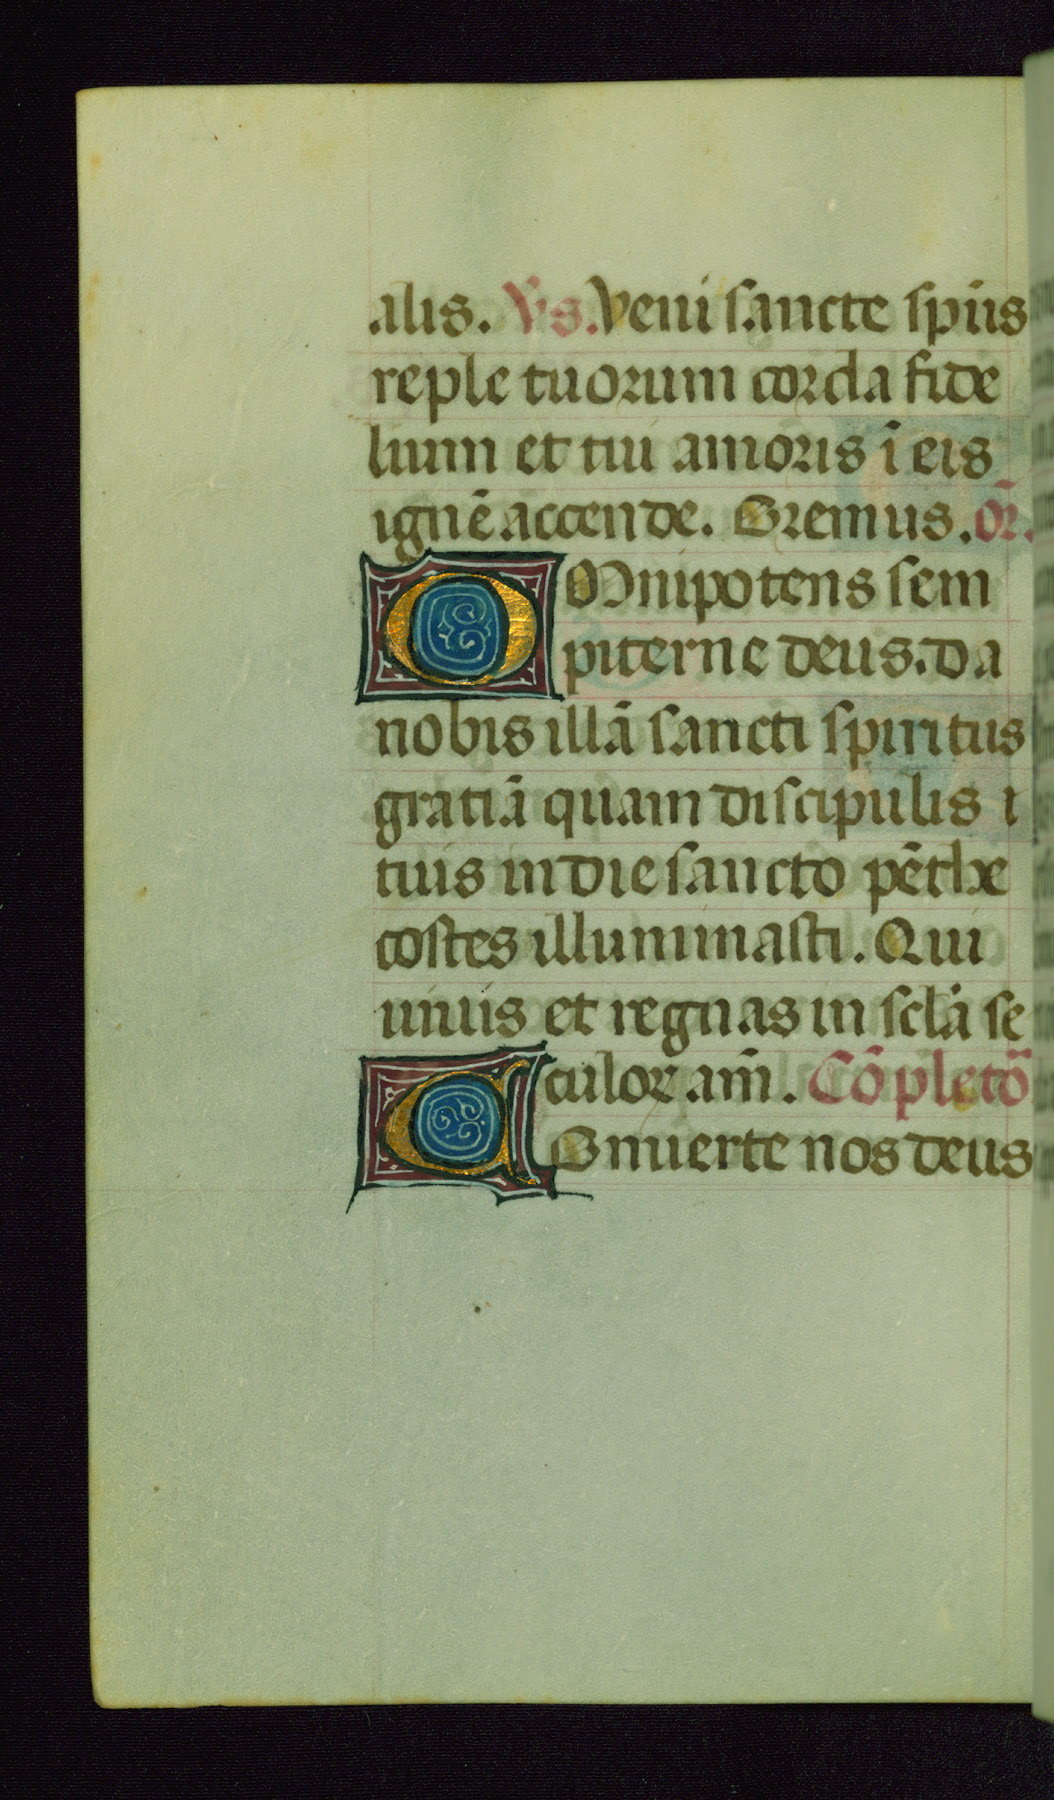 alis. Vs. Veni sancte sp̄us
reple tuorum corda fide
lium et tui amoris ī eis
ignē accende. Oremus. or̄.
Omnipotens sem
piterne deus. da
nobis illā sancti spiritus
gratiā quam discipulis i
tuis in die sancto pēthe
costes illuminasti. Qui
uiuis et regnas in sclā se
culor am̄. Cōpletō
Cnuerte nos deus